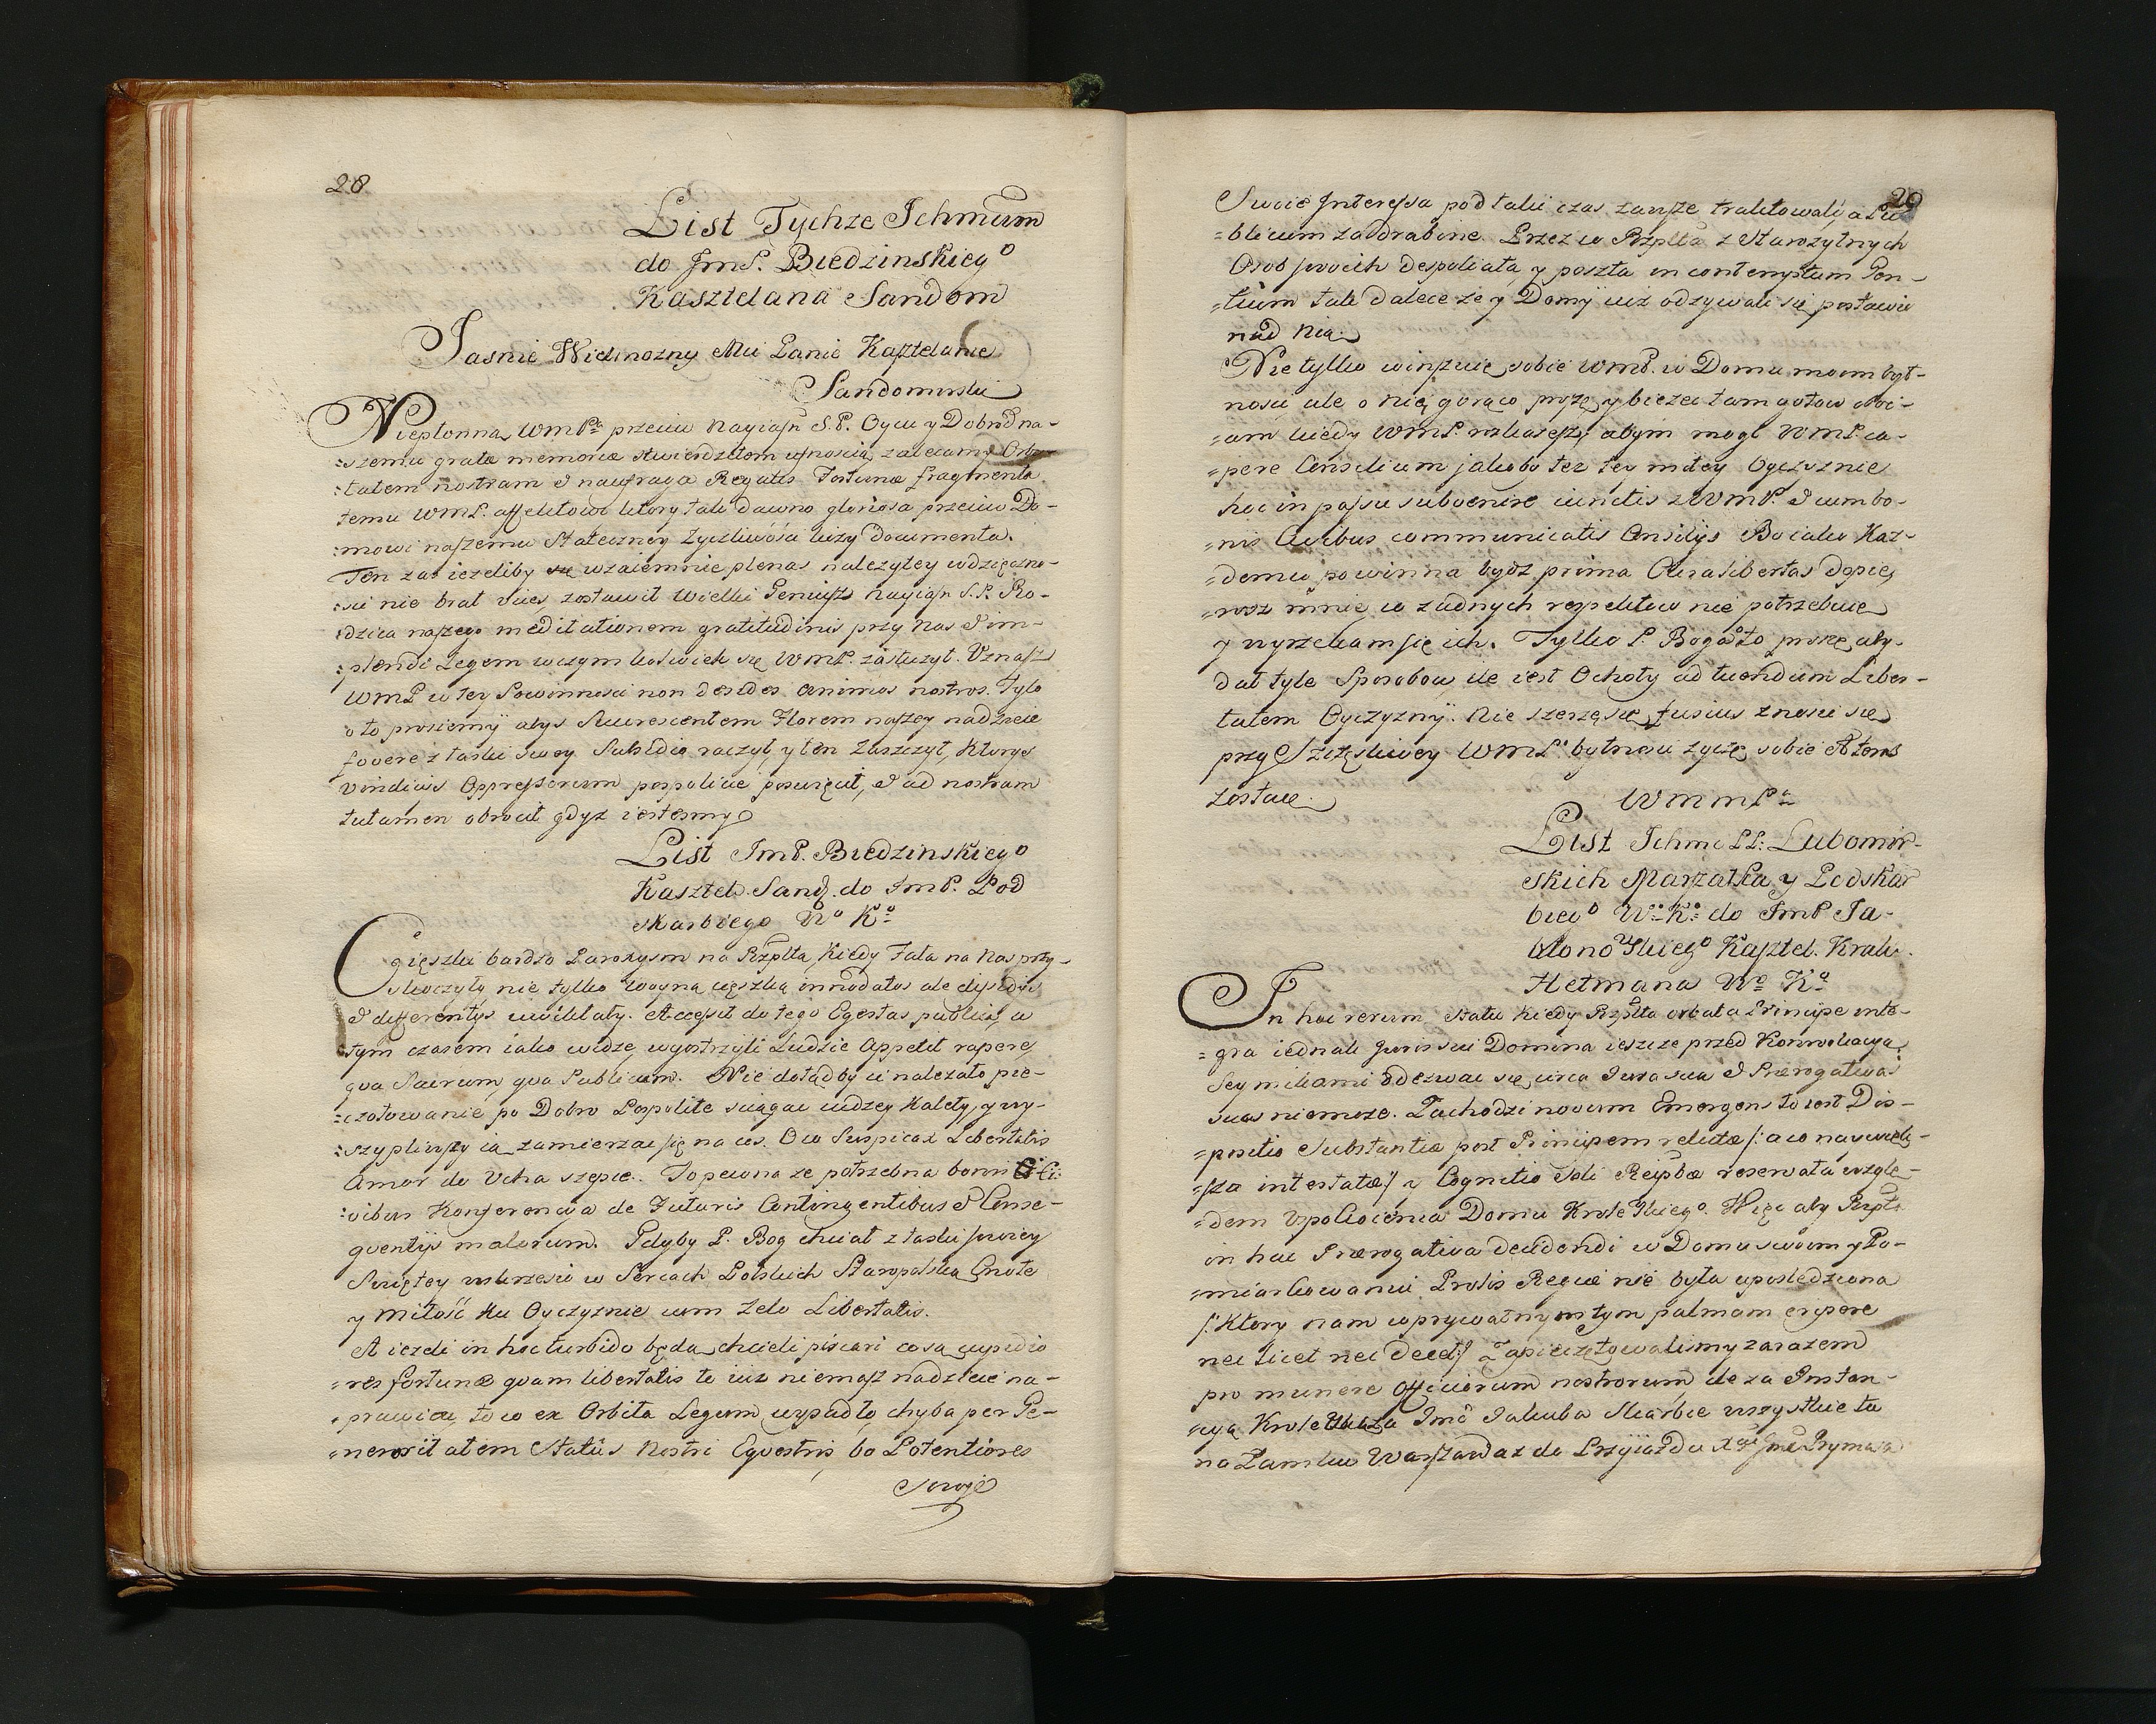 28
List Tychże Ichmciom
do JmP. Biedzinskieg⁰
Kasztelana Sandom
Jasnie Wielmozny Mci Panie Kasztelanie
Sandomirski
Niepłonna WmPa przeciw Nayiasn S.P. Oycu y Dobrod na-
:szemu gratæ memoriæ stwierdzeniem ufnoscią zalecamy Orbi-
:tatem nostram & naufraga Regalis Fortunæ fragmenta
temu WmP. affektowi ktory tak dawno gloriosa przeciw Do-
:mowi naszemu Stateczney Zyczliwości liczy Documenta.
Ten zas iezeliby się wzaiemnie plenas nalezytey wdzięczno-
:sci nie brał vices, zostawił Wielki Geniusz Nayiasn S.P. Ro-
:dzica naszego meditationem gratitudinis przy nas & im-
:plendi Legem w czym kolwiek się WmP. zasłuzył. Uznasz
WmP w tey Powinnosci non desides animos nostros. Tylo
o to prosiemÿ abys Succrescentem Florem naszey nadzieie
fovere z łaski swey Subsidio raczył, y ten Zaszczyt, Ktorys
vindicias Oppressorum pospolicie poswięcił, & ad nostram
tutamen obrocił gdyz iestesmy
List JmP. Biedzinskieg⁰
Kasztel. Sand. do JmP. Pod
skarbiego Wº Kº
Cięszki bardzo Paroxysm na Rzplta, Kiedy Fata na Nas przy-
:skoczyły nie tylko Woyną cięszką innodatos ale dissidijs
& differentijs uwikłały. Accessit do tego Egestas publica, a
tym czasem iako widzę, wyostrzyli Ludzie Appetit rapere,
qua Sacrum, qua Publicum. Nie dotądby ci nalezało pie-
:czętowanie po Dobro Pospolite sciągac cudzey Kalety, y wy-
:szypliwszy ią zamierzac się na cos. Ow Suspicax Libertatis
Amor do Ucha szepce. To pewna ze potrzebna bonis Ci:
:vibus Konferencya de Futuris Contingentibus & Conse-
quentijs malorum. Gdyby P. Bog chciał z łaski swoiey
Swiętey wskrzesic w Sercach Polskich Staropolską Cnotę
y miłość ku Oyczyznie cum Zelo Libertatis.
A iezeli in hoc turbido będą chcieli piscari co są cupidio
=res fortunæ quam libertatis to iuz niemasz nadzieie na-
=prawic to co ex Orbita Legum wypadło chyba per Ge-
=nerositatem Statûs Nostri Equestris, bo Potentiores
Swoje
29
Swoie Interessa pod taki czas zawsze traktowali, a Pu
=blicum zaodrabine. Przez co Rzplta z Starozytnych
Ozdob swoich despoliata, y poszła in contemptum Gen-
=tium tak dalece ze y Domÿ iuz odzywali się postawic
nad Nią.
Nie tylko winszuię sobie WmP. w Domu moim byt-
nosci, ale o nię gorąco proszę, y biezec tam gotow obi-
=am kiedy WmP. rozkazesz, abym mogł WmP. ca-
=pere Consilium jakoby tez tey miłey Oyczyznie
hoc in passu subvenire iunctis z WmP. & cum bo-
=nis Civibus communicatis Consilijs. Bo iako Kaz-
=demu powinna bydz prima Cura libertas dopie-
=rosz mnie, co zadnych respektow nie potrzebuię
y wyrzekam się ich. Tylko P. Boga o to proszę, aby
dał tyle Sposobow, ile iest Ochoty ad tuendum Liber-
tatem Oyczyznÿ. Nie szerzę się fusius znosic się
przy Szczęsliwey WmPa bytnosci zyczę sobie A teras
zostaię.
WmmPa
List Ichmc PP: Lubomir-
skich Marzałka y Podskar
bieg⁰ W.º K.º do JmP Ja-
błonowskieg⁰ Kasztel. Krak.
Hetmana Wº Kº
In hoc rerum statu Kiedy Rzplta orbata Principe inte-
=gra iednak Juris sui Domina ieszcze przed Konwokacyą
Seymikami odezwac się circa Jura sua & Prærogativas
suas niemoze. Zachodzi novum Emergens to iest Dis-
=positio Substantiæ post Principem relictæ /: a co naywięk-
=sza intestatæ:/ y Cognitio soli Reipbcæ reservata wzglę-
=dem Uspokoienia Domu Krolewskieg⁰. Więc aby Rzplta
in hac Prærogativa decidendi w Domu swoim y Po-
=miarkowaniu Prolis Regiæ nie była uposledzona
/: Ktory nam w prywatnym tym palmam eripere
nec licet nec decet:/ Zapieczętowalismy zarazem
pro munere Officiorum nostrorum, ile za Instan-
=cyą Krolewicza Jmci Jakuba Skarbce wszystkie tu
na Zamku Warszaw az do Przyiazdu Xcia Jmci Prymasa